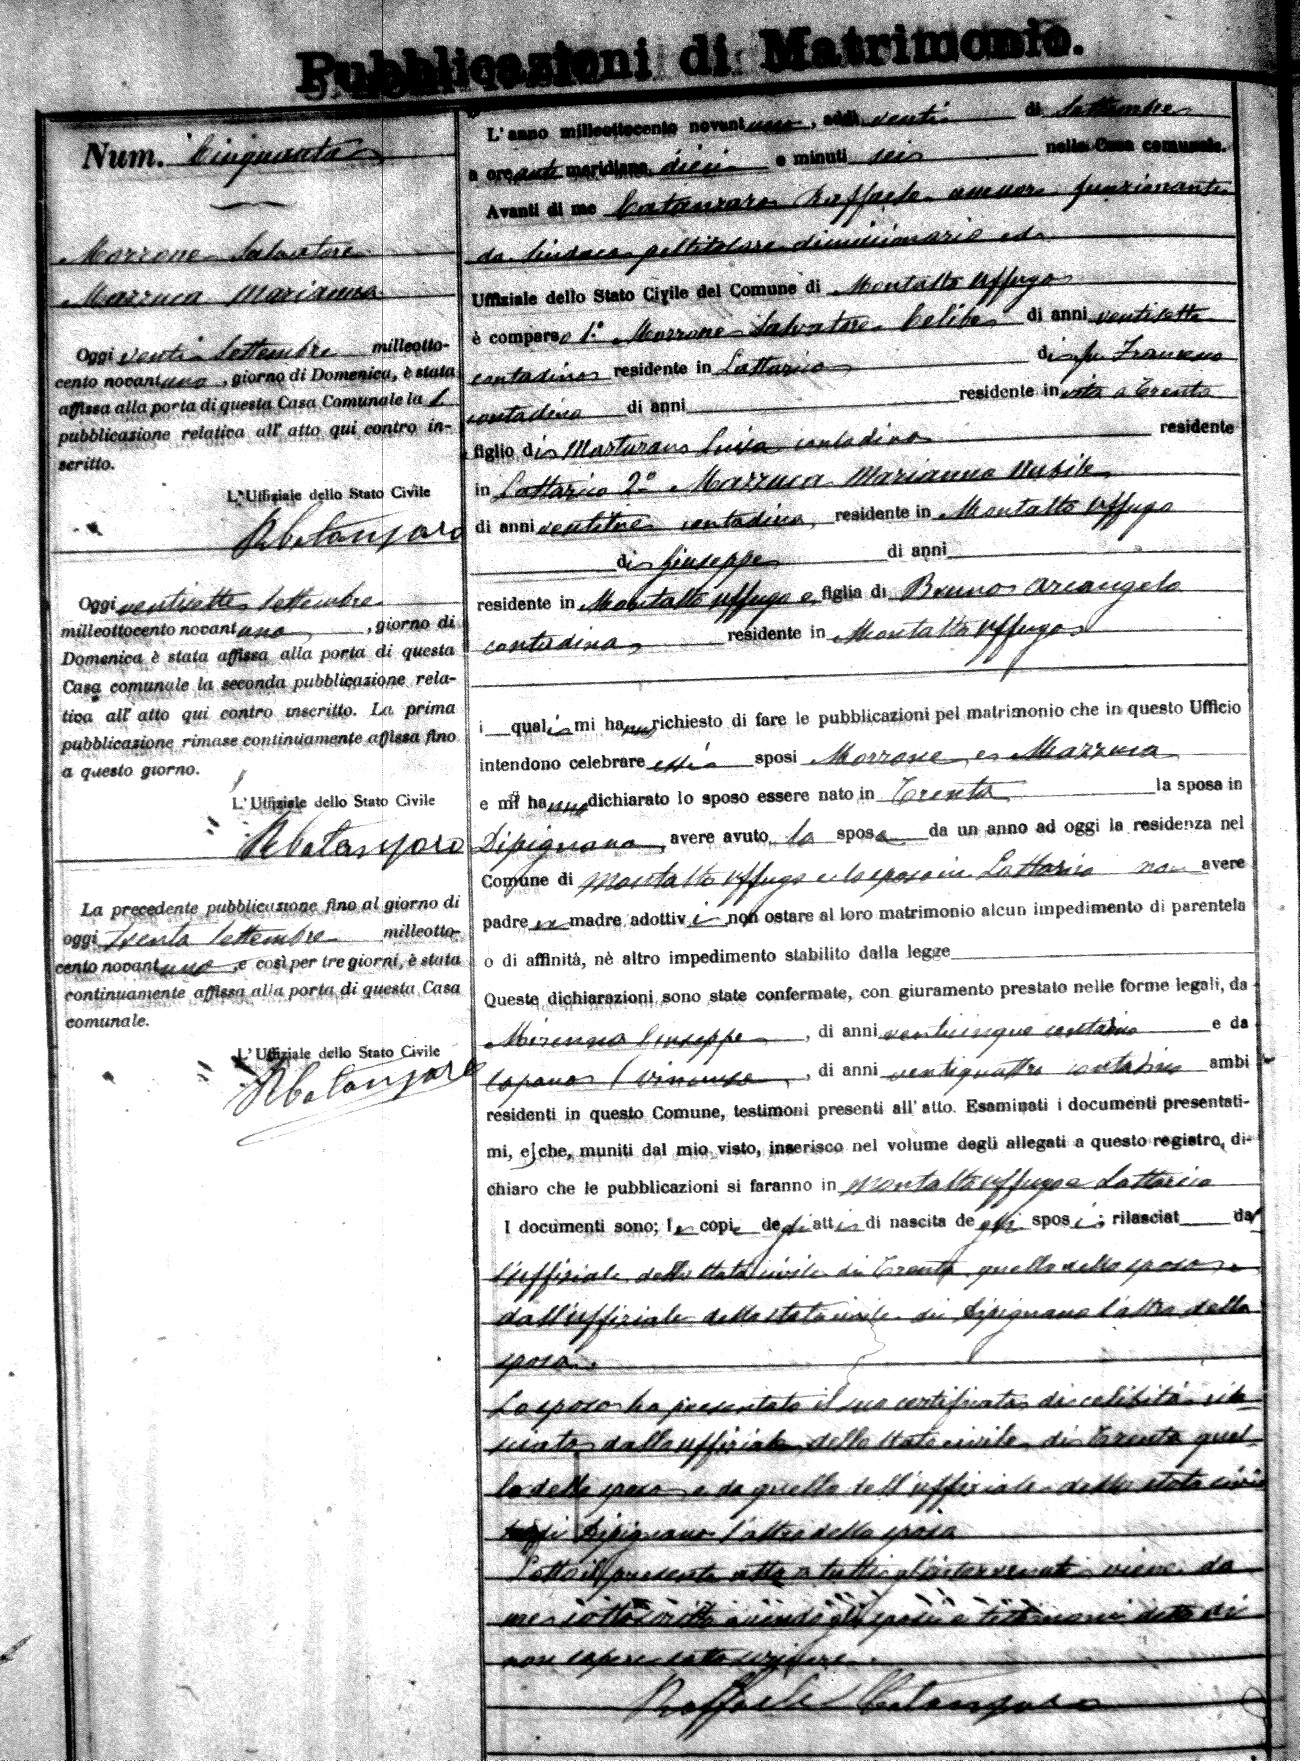 Pubblicazioni di Matrimonio.
Num. Cinquanta
Morrone Salvatore
Mazzuca Marianna
Oggi venti Settembre milleotto-
cento novantuno, giorno di Domenica, è stata
affissa alla porta di questa Casa Comunale la 1.
pubblicazione relativa all' atto qui contro in-
scritto.
L'Uffiziale dello Stato Civile
RCatanzaro
Oggi ventisette Settembre
milleottocento novantuno, giorno di
Domenica è stata affissa alla porta di questa
Casa comunale la seconda pubblicazione rela-
tiva all' atto qui contro inscritto. La prima
pubblicazione rimase continuamente affissa fino
a questo giorno.
L'Uffiziale dello Stato Civile
RCatanzaro
La precedente pubblicazione fino al giorno di
oggi trenta Settembre milleotto-
cento novantuno, e così per tre giorni, è stata
continuamente affissa alla porta di questa Casa
comunale.
L'Uffiziale dello Stato Civile
RCatanzaro
L'anno milleottocento novantuno, addì venti di Settembre
a ore anti meridiane dieci e minuti sei nella Casa comunale.
Avanti di me Catanzaro Raffaele funzionante
da Sindaco pel titolare dimissionario ed
Uffiziale dello Stato Civile del Comune di Montalto Uffugo
è comparso 1.° Morrone Salvatore Celibe di anni ventisette
contadino residente in Lattarico di fu Francesco
contadino di anni residente in vita a Trenta
figlio di Marturano Luisa contadina residente
in Lattarico 2° Mazzuca Marianna Nubile
di anni ventitre contadina, residente in Montalto Uffugo
di Giuseppe di anni
residente in Montalto Uffugo e figlia di Bruno Arcangela
contadina residente in Montalto Uffugo
i quali mi hanno richiesto di fare le pubblicazioni pel matrimonio che in questo Ufficio
intendono celebrare essi sposi Morrone e Mazzuca
e mi hanno dichiarato lo sposo essere nato in Trenta la sposa in
Dipignano, avere avuto la sposa da un anno ad oggi la residenza nel
Comune di Montalto Uffugo e lo sposo in Lattarico non avere
padre e madre adottivi non ostare al loro matrimonio alcun impedimento di parentela
o di affinità, nè altro impedimento stabilito dalla legge
Queste dichiarazioni sono state confermate, con giuramento prestato nelle forme legali, da
Giuseppe, di anni venticinque contadino e da
di anni ventiquattro contadino ambi
residenti in questo Comune, testimoni presenti all' atto. Esaminati i documenti presentati-
mi, e che, muniti dal mio visto, inserisco nel volume degli allegati a questo registro, di-
chiaro che le pubblicazioni si faranno in Montalto Uffugo e Lattarico
I documenti sono; le copie degli atti di nascita degli sposi; rilasciat da
l'uffiziale dello stato civile di Trenta quello dello sposo e
dall'uffiziale dello stato civile di Dipignano l'altro della
sposa.
Lo sposo ha presentato il suo certificato di celibità rila-
sciato dallo uffiziale dello stato civile di Trenta quel-
lo dello sposo e da quello dell'uffiziale dello stato civile
di Dipignano l'altro della sposa
Letto il presente atto a tutti gl'intervenuti viene da
me sottoscritto avendo gli sposi e testimoni detto di
non sapere sottoscrivere.
Raffaele Catanzaro